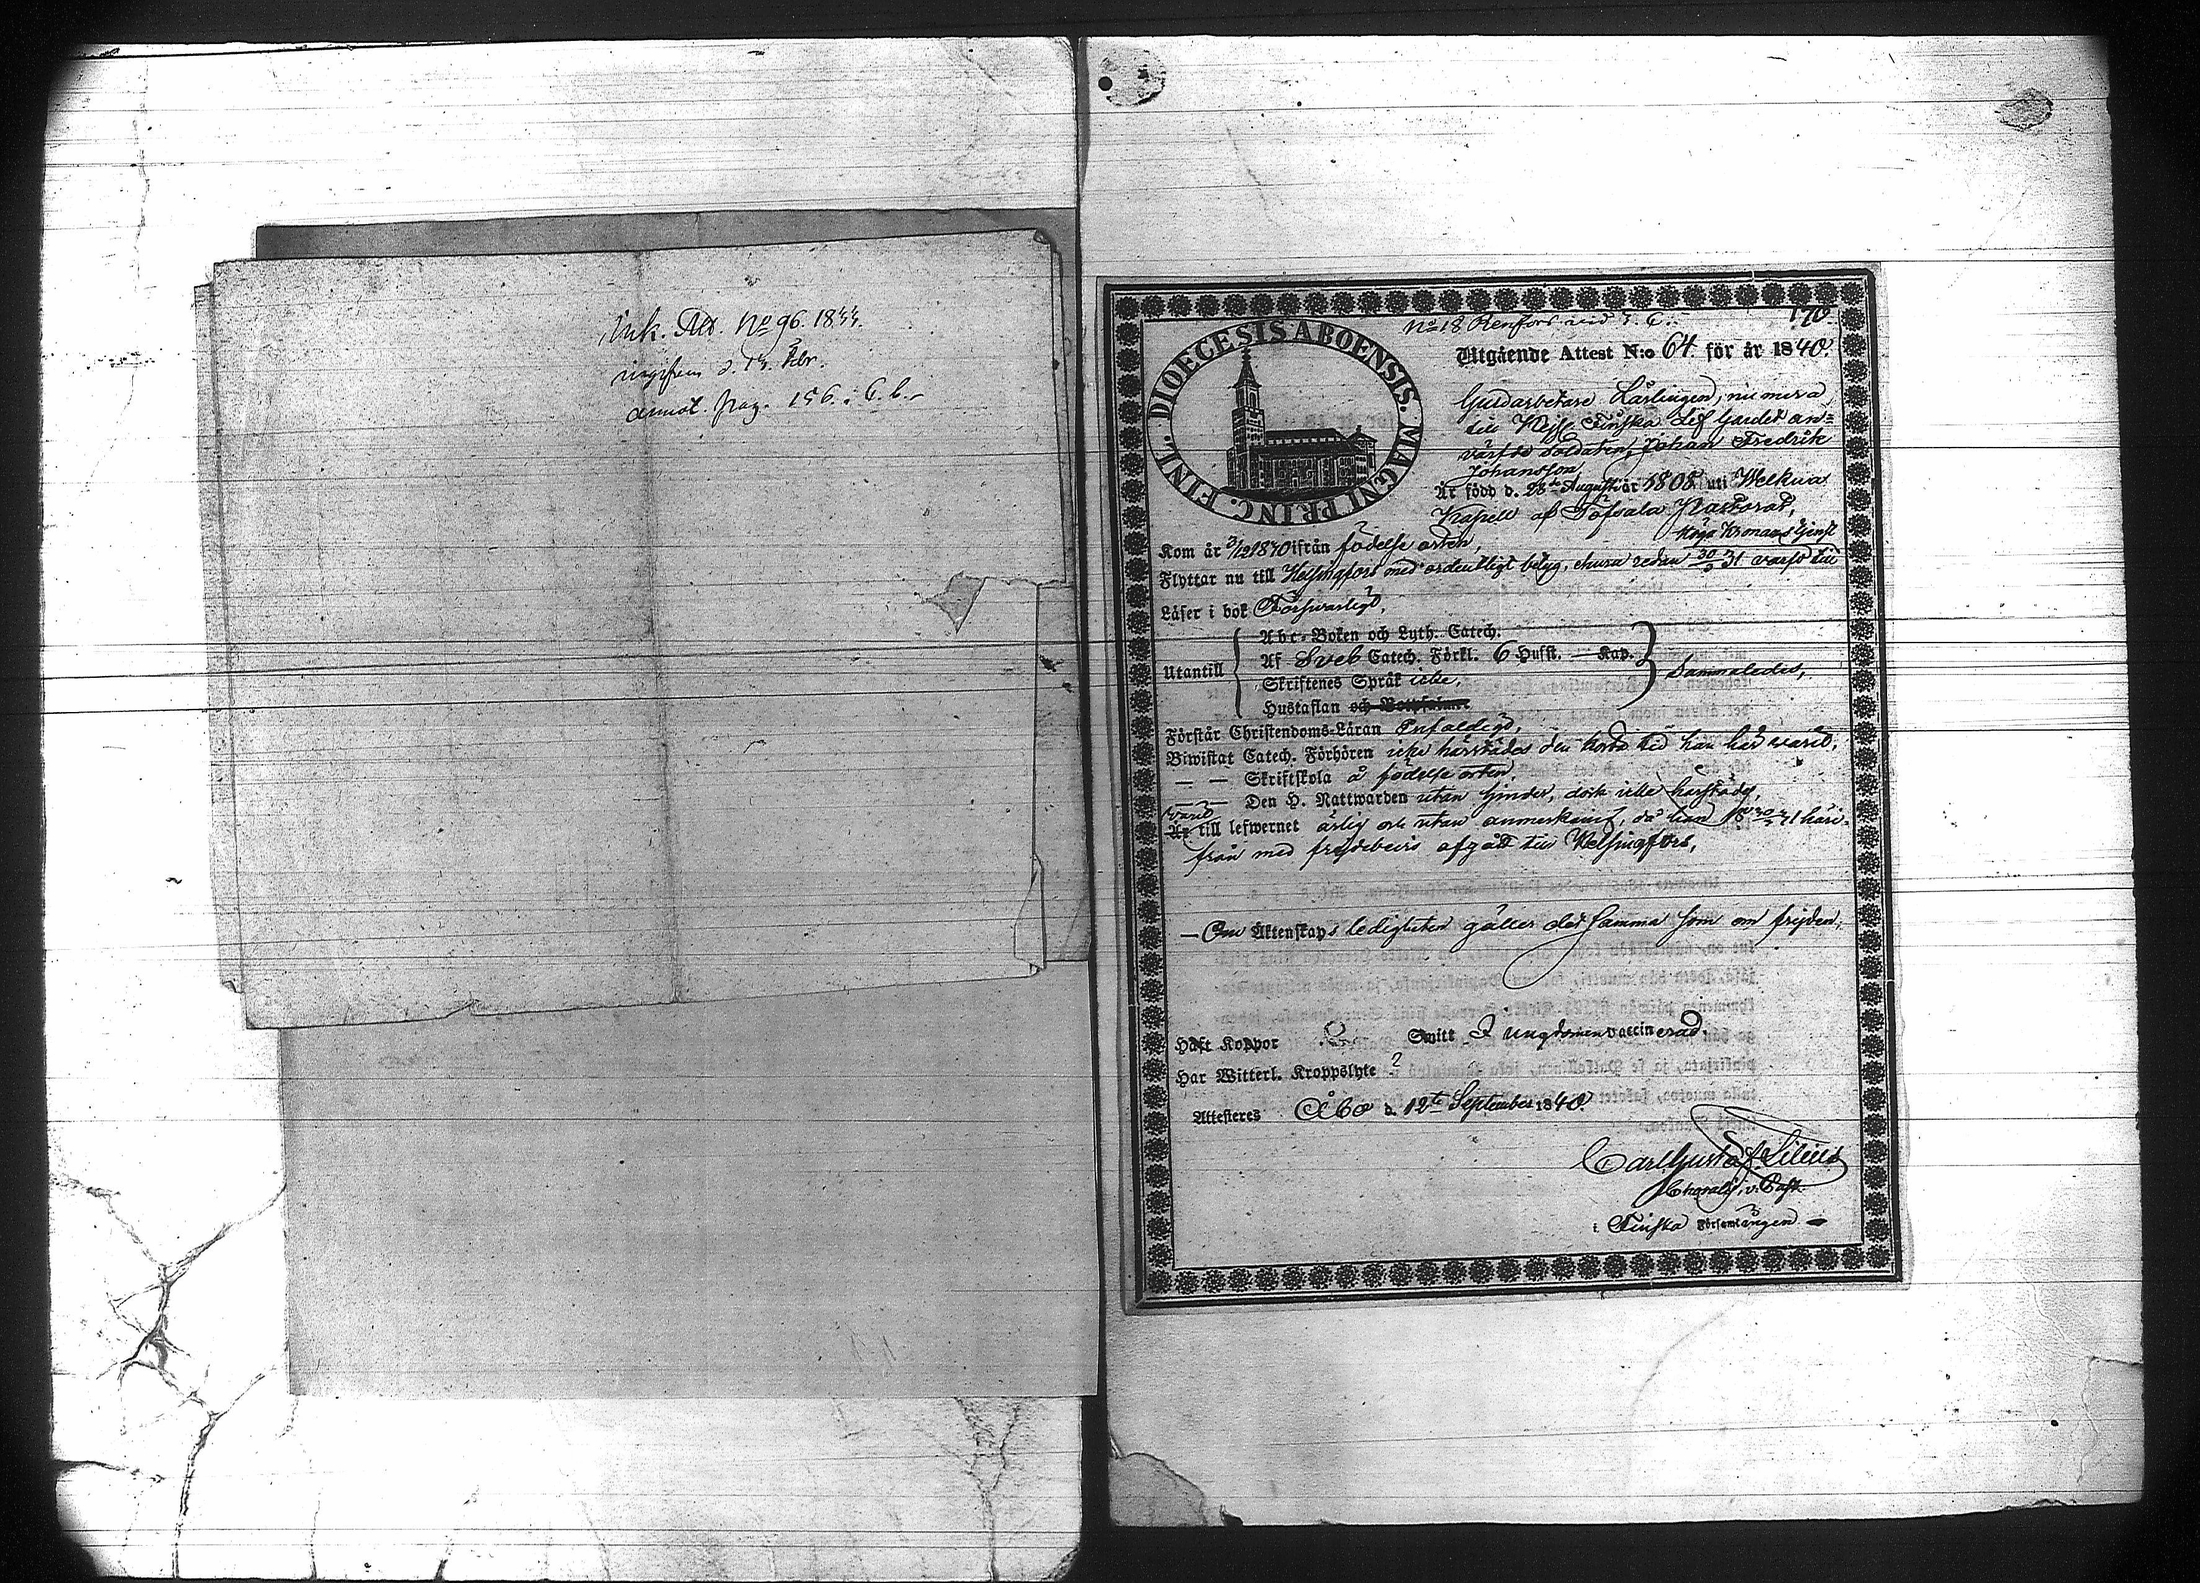 Ink. Att. No 96. 1844.
ingifven d. 13. Febr.
annot. pag. 156. i C. b.
No 18 Renfors vid
170.
DIOECESIS ABOENSIS. MAGNI PRINC. FINL.
Utgående Attest N:o 64. för år 1840.
Guldarbetare Lärlingen, numera
till Finska Lif Gardet an-
värfde Soldaten, Johan Fredrik
Johansson
Är född d. 28de Augusti år 1808. uti Welkua
Kapell af Töfsala Pastorat,
Höga Kronans tjenst
Kom år 3/12 1830 ifrån födelse orten,
Flyttar nu till Helsingfors med ordentligt betyg, ehuru redan 30/9 31 till
Läser i bok Försvarligt,
Abc-Boken och Luth. Catech.
Af Sveb Catech. Förkl. 6 Hufst. — Kap.
Utantill
Sammaledes,
Skriftenes Språk icke,
Hustaflan och Botpsalmer
Förstår Christendoms-Läran Enfaldigt,
Biwistat Catech. Förhören icke härstädes den korta tid han här varit,
— — Skriftskola å födelse orten,
— — Den H. Nattwarden utan hinder, dock icke härstädes,
varit
Är till lefwernet ärlig och utan anmerkning, då han 18 30/9 31 häri-
från med frejdebevis afgått till Helsingfors,
— Om Äktenskaps ledigheten gäller det samma som om frejden,
Haft Koppor Smitt I ungdomen vaccinerad.
Har Witterl. Kroppslyte ?
Attesteres Åbo d. 12te September 1840.
Carl Gustaf Lilius
v. Past.
i Finska Församlingen